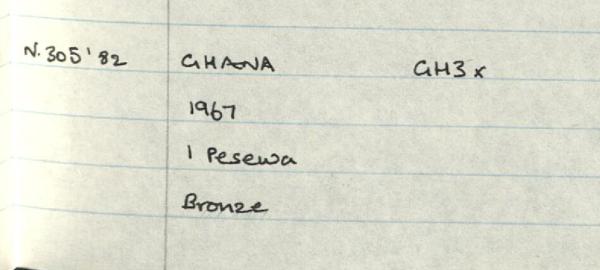 N.305'82 GHANA GH3x
1967
1 Pesewa
Bronze